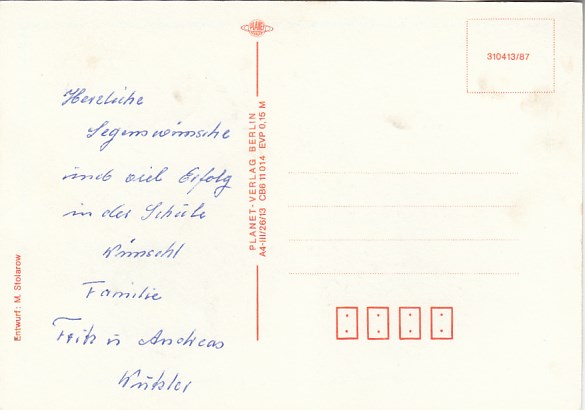 Herzliche
Segenswünsche
und viel Erfolg
in der Schule
wünscht
Familie
Fritz u Andreas
Entwurf: M. Stolarow
PLANET
PLANET-VERLAG BERLIN
A4-III/26/13 CB6 11 014 EVP 0,15 M
310413/87